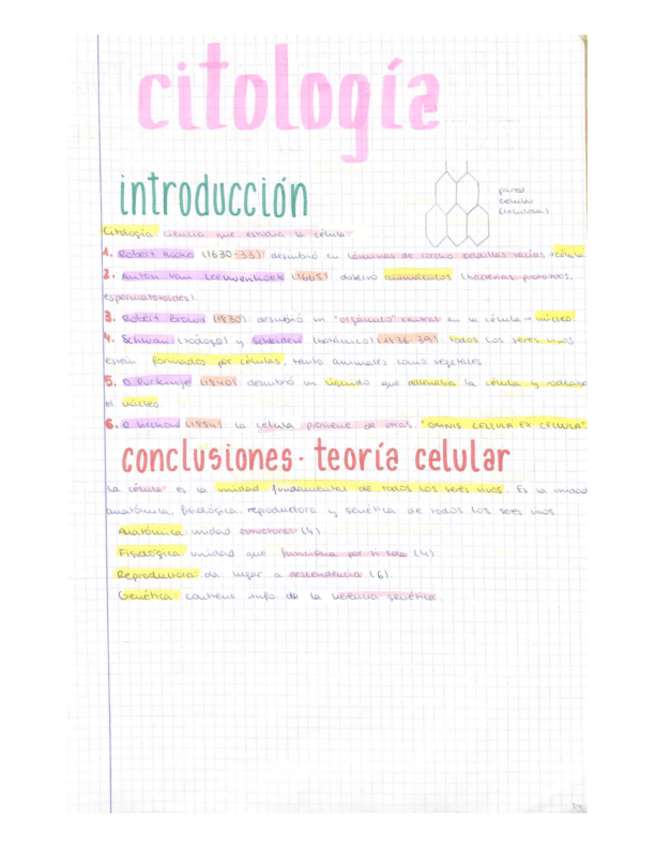 citología
introducción
pared
celular
(celulosa)
Citología: ciencia que estudia la célula
1. Robert Hooke (1630-33): descubrió en láminas de corcho celdillas vacías → célula
2. Anton Van Leeuwenhoek (1665): observó animáculos (bacterias, protozoos,
espermatozoides).
3. Robert Brown (1830): descubrió un "orgánulo" central en la célula → núcleo.
4. Schwan (zoólogo) y Schleiden (botánico) (1836-39): todos los seres vivos
están formados por células, tanto animales como vegetales.
5. D. Purkinje (1840): descubrió un líquido que rellenaba la célula y rodeaba
el núcleo.
6. R. Virchow (1854): la célula proviene de otras. "OMNIS CELLULA EX CELLULA"
conclusiones · teoría celular
La célula es la unidad fundamental de todos los seres vivos. Es la unidad
anatómica, fisiológica, reproductora y genética de todos los seres vivos.
Anatómica: unidad estructural (4).
Fisiológica: unidad que funciona por sí sola (4).
Reproductora: da lugar a descendencia (6).
Genética: contiene info de la herencia genética.